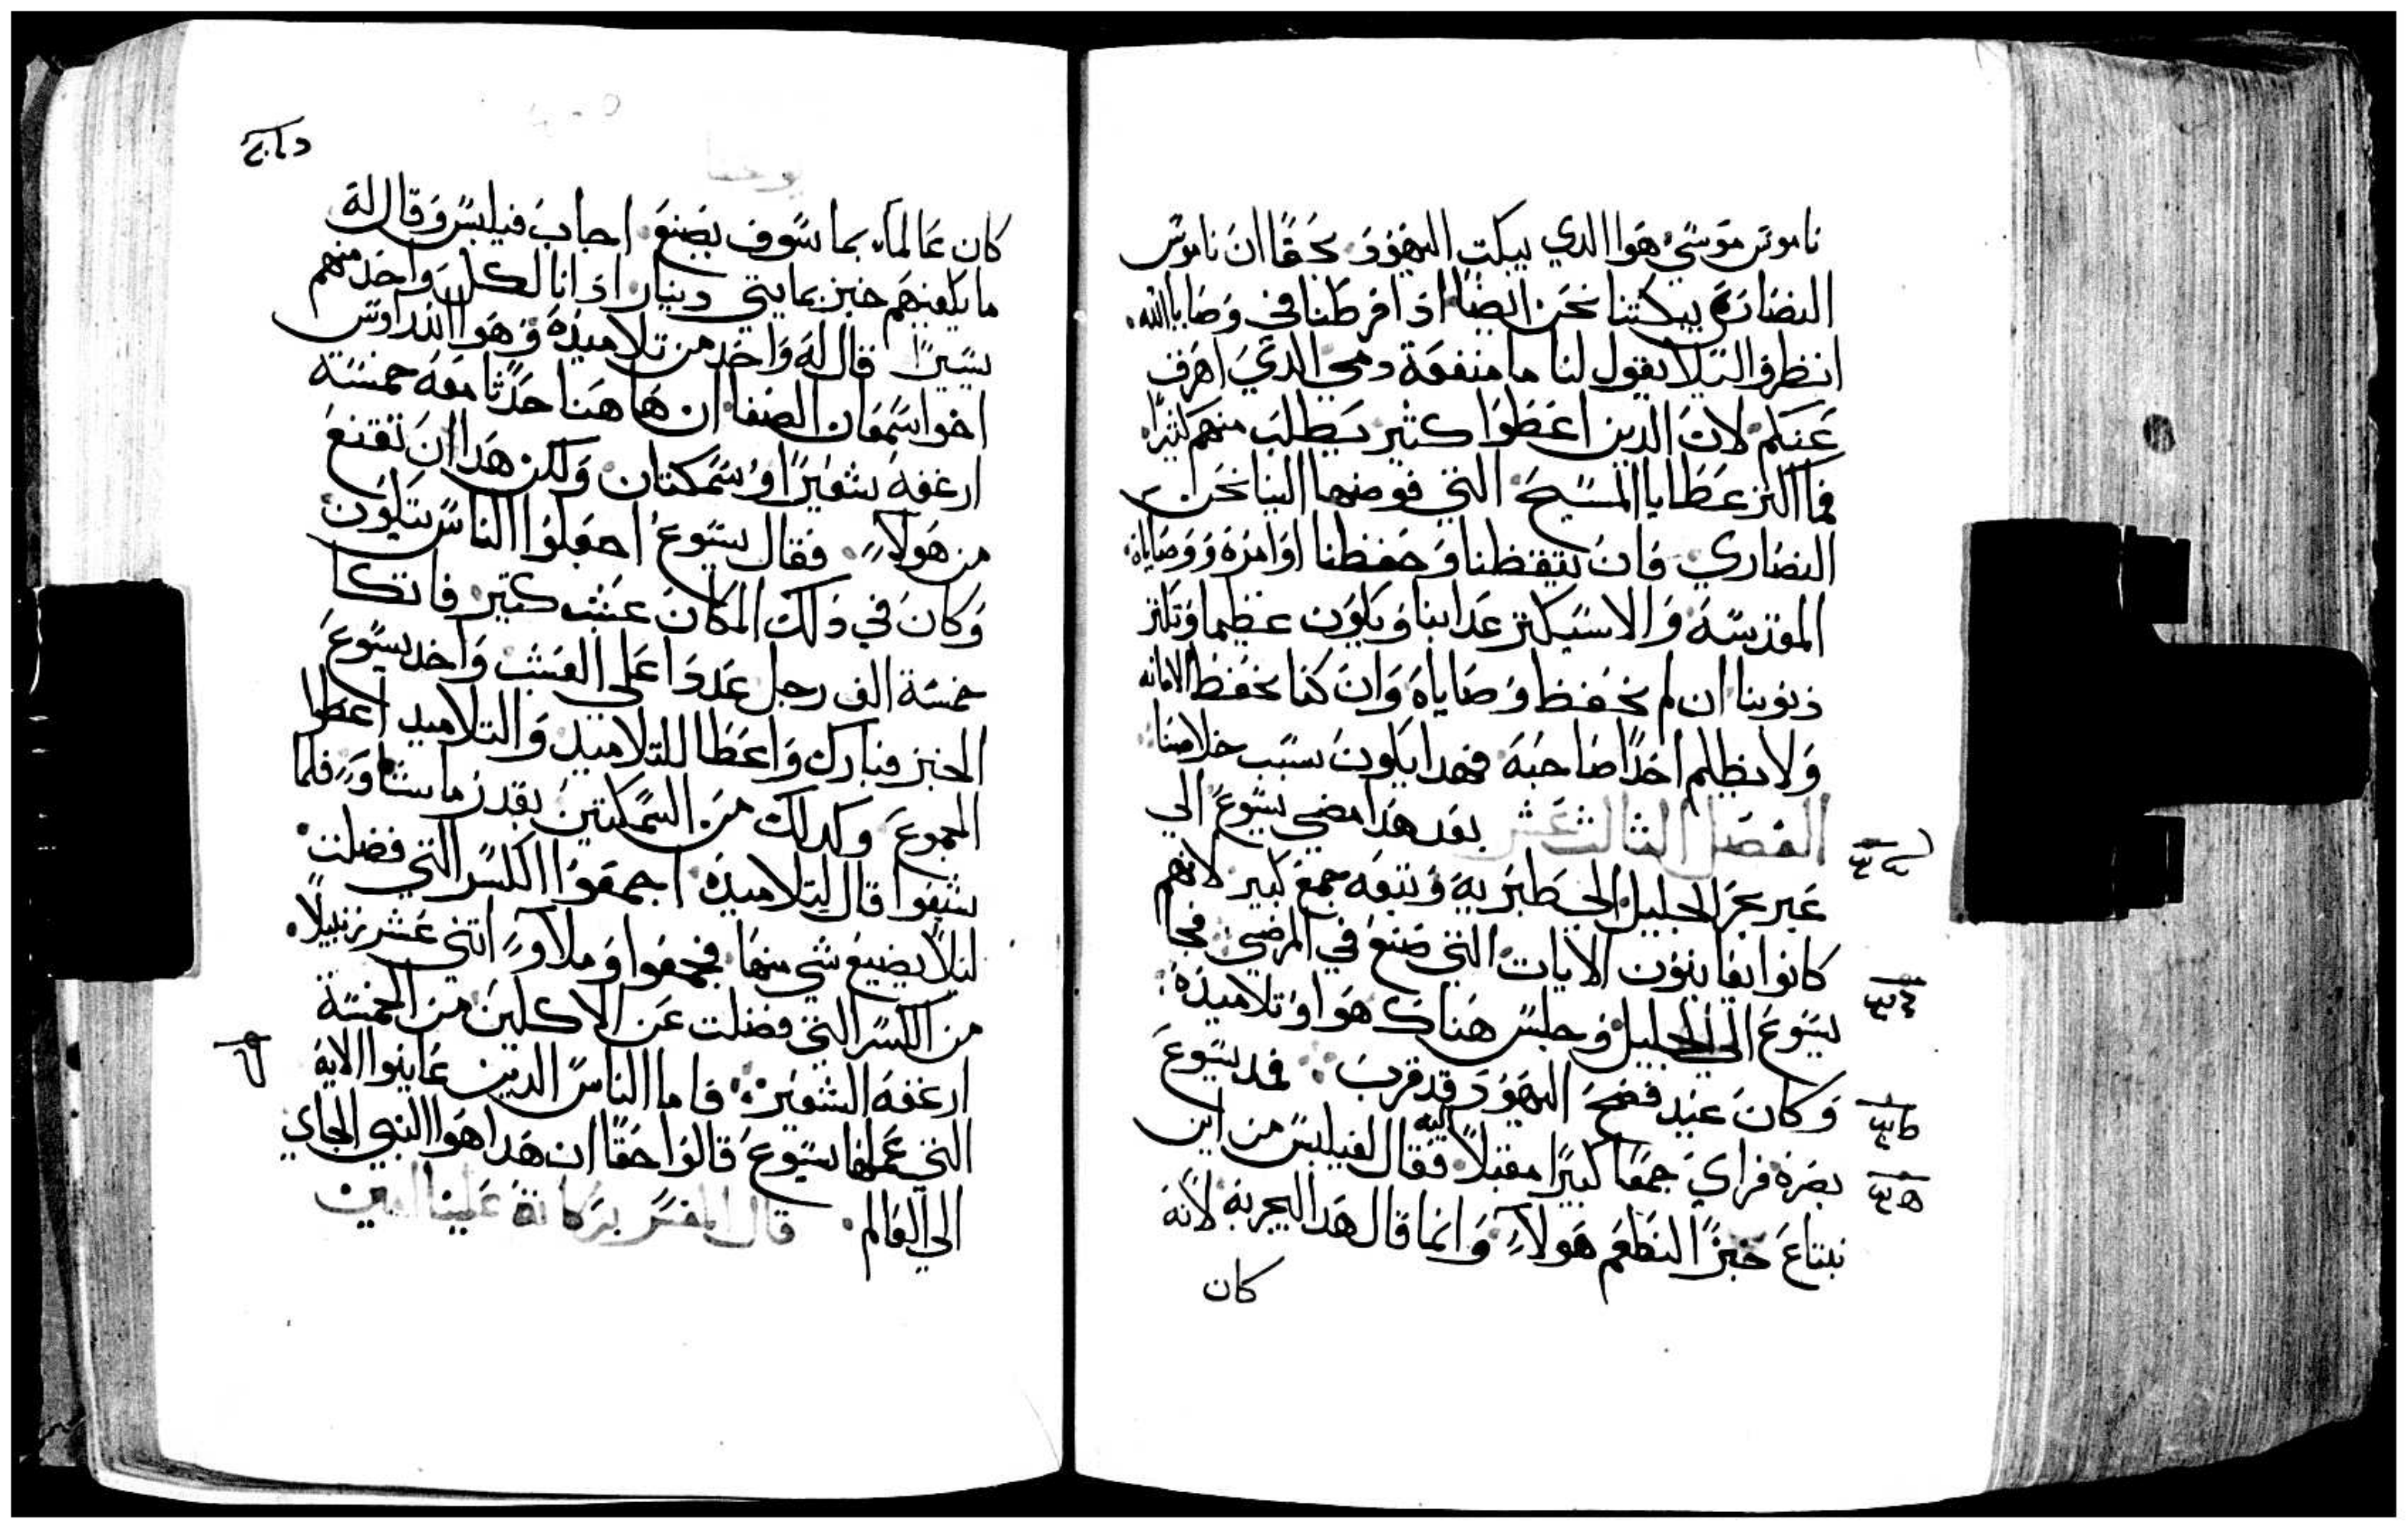 ناموس موسي هوا الدي يبكت اليهود بحقا ان ناموس
النصاره يبكتنا نحن ايضا اذ افرطنا في وصايا الله.
انظروا ليلا يقول لنا ما منفعة دمي الدي اهرف
عنكم لان الدين اعطوا كثير يطلب منهم كثيرا
فما اكثر عطايا المسيح التي فوضها الينا نحن
النصاري فان تيقظنا وحفظنا اوامره ووصاياه
المقدسه والا سيكثر عدابنا ويكون عظيما وتكثر
ذنوبنا ان لم نحفظ وصاياه وان كنا نحفظ الامانه
ولا يظلم احدا صاحبه فهدا يكون بسبب خلاصنا
الفصل الثالث عشر بعد هدا مضي يسوع الي
عبر بحر الجليل الي طبريه وتبعه جمع كبير لانهم
كانوا يعاينون الايات التي صنع في المرضي فجا
يسوع الي الجليل وجلس هناك هوا وتلاميذه
وكان عيد فصح اليهود قد قرب فمد يسوع
بصره فراي جمعا كبيرا مقبلا اليه فقال لفيلبس من اين
نبتاع خبزا لنطعم هولاء وانما قال هدا ليجربه لانه
كان
كان عالما بما سوف يصنع اجاب فيلبس وقال له
ما يكفيهم خبز بمايتي دينار اذا نال كل واحد منهم
يسيرا قال له واحد من تلاميذه وهوا اندراوس
اخوا سمعان الصفا ان هاهنا حدثا معه خمسة
ارغفه شعيرا وسمكتان ولكن هدا ان تقنع
من هولاء فقال يسوع اجعلوا الناس يتكون
وكان في دلك المكان عشب كتير فاتكا
خمسة الف رجل عددا علي العشب واخد يسوع
الخبز فبارك واعطا للتلاميذ والتلاميد اعطوا
الجموع وكدلك من السمكتين بقدر ما شاوء فلما
شبعوا قال لتلاميذه اجمعوا الكسر التي فضلت
ليلا يضيع شي منها فجمعوا وملاوء اتني عشر زنبيلا.
من الكسر التي فضلت عن الاكلين من الخمسة
ارغفه الشعير فاما الناس الدين عاينوا الايه
التي عملها يسوع قالوا حقا ان هدا هوا النبي الجاي
الي العالم. قال المفسر بركاته علينا امين